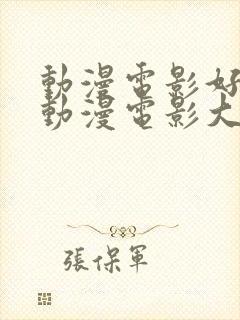 動漫電影好
動漫電影大
張保軍